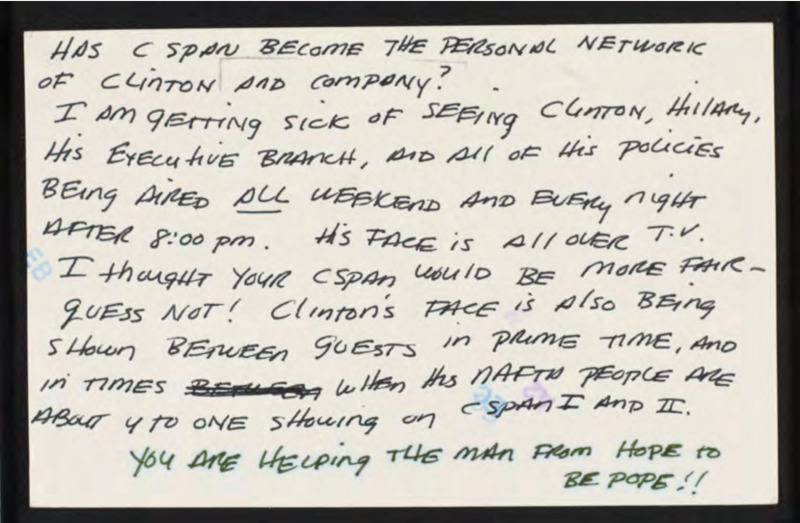 HAS C SPAN BECOME THE PERSONAL NETWORK
OF CLINTON AND COMPANY?
I AM GETTING SICK OF SEEING CLINTON, HILLARY,
HIS EXECUTIVE BRANCH, AND ALL OF HIS POLICIES
BEING AIRED ALL WEEKEND AND EVERY NIGHT
AFTER 8:00 pm. HIS FACE IS ALL OVER T.V.
I THOUGHT YOUR CSPAN WOULD BE MORE FAIR-
GUESS NOT! CLINTON'S FACE IS ALSO BEING
SHOWN BETWEEN GUESTS IN PRIME TIME, AND
IN TIMES BETWEEN WHEN HIS NAFTA PEOPLE ARE
ABOUT 4 TO ONE SHOWING ON CSPAN I AND II.
YOU ARE HELPING THE MAN FROM HOPE TO
BE POPE!!